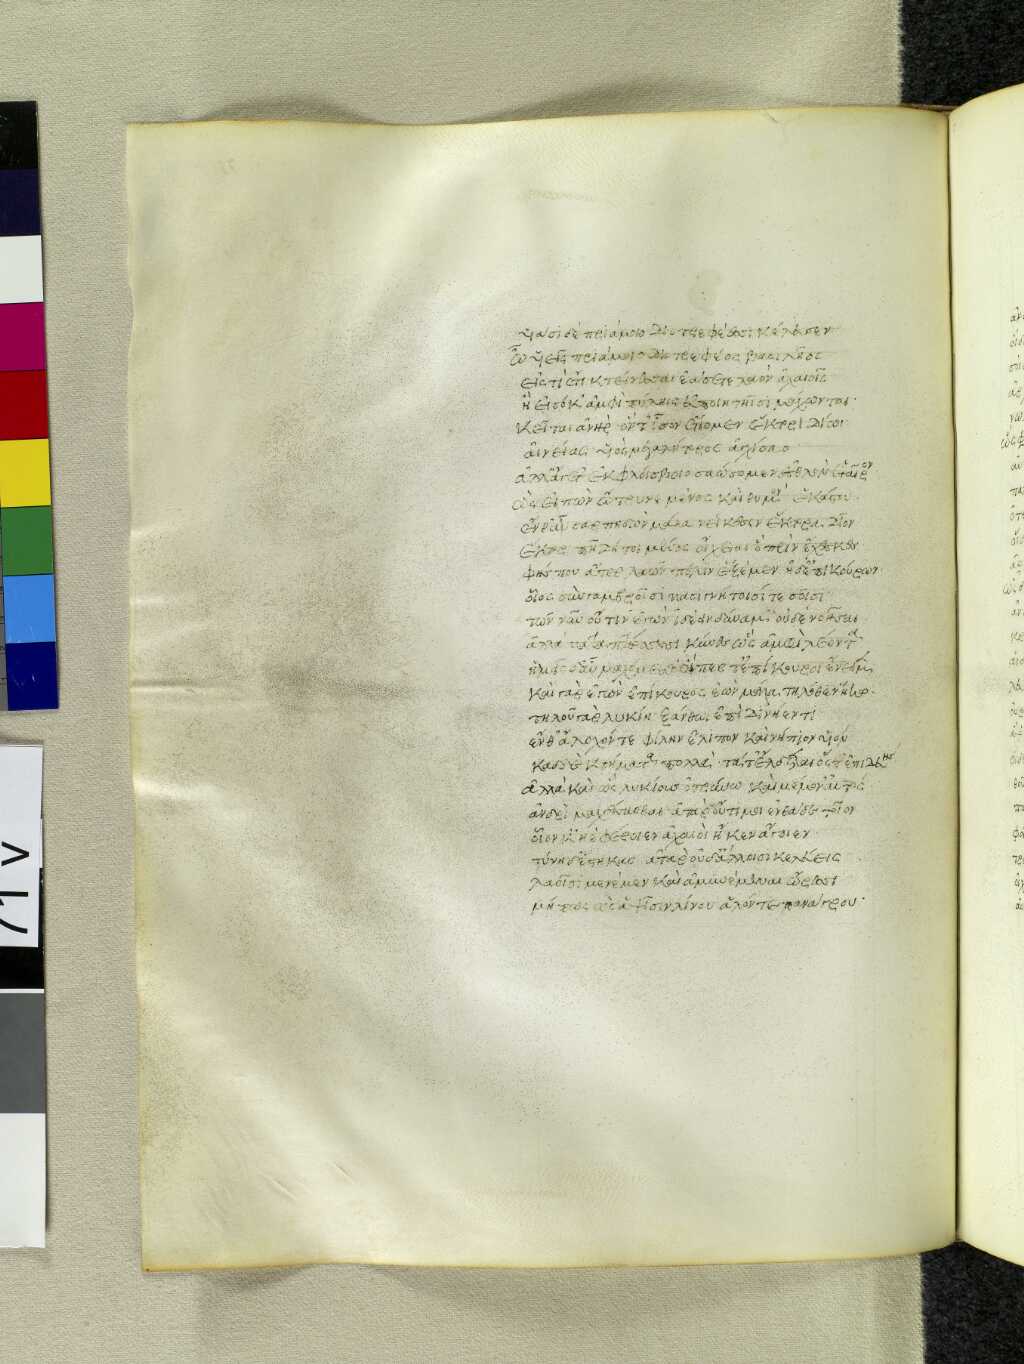 υἱάσι δὲ πριάμοιο διοτρεφέεσσι κέλευσεν
ὦ υἱεῖς πριάμοιο διοτρεφέος βασιλῆος
ἐς τί ἔτι κτείνεσθαι ἐάσετε λαὸν ἀχαιοῖς
ἢ εἰσόκ' ἀμφὶ πύληις εὐποιητῆισι μάχωνται·
κεῖται ἀνὴρ ὃν τ' ἶσον ἐτίομεν ἕκτορι δίωι
αἰνείας υἱὸς μεγαλήτορος ἀγχίσαο
ἀλλ' ἄγετ' ἐκ φλοίσβοιο σαώσομεν ἐσθλὸν ἑταῖρον
ὣς εἰπὼν ὤτρυνε μένος καὶ θυμὸν ἑκάστου
ἔνθ' αὖ σαρπηδὼν μάλα νείκεσεν ἕκτορα δῖον
ἕκτορ πῆ δή τοι μένος οἴχεται ὃ πρὶν ἔχεσκες
φῆς που ἄτερ λαῶν πόλιν ἑξέμεν ἠδ' ἐπικούρων
οἶος σὺν γαμβροῖσι κασιγνήτοισί τε σοῖσι
τῶν νῦν οὔ τιν' ἐγὼν ἰδέειν δύναμ' οὐδὲ νοῆσαι
ἀλλὰ καταπτώσσουσι κύνες ὣς ἀμφὶ λέοντα
ἡμεῖς δ' αὖ μαχόμεσθ' οἵπερ τ' ἐπίκουροι ἔνειμεν
καὶ γὰρ ἐγὼν ἐπίκουρος ἐὼν μάλα τηλόθεν ἥκω·
τηλοῦ γὰρ λυκίη ξάνθωι ἐπὶ δινήεντι
ἔνθ' ἄλοχόν τε φίλην ἔλιπον καὶ νήπιον υἱόν
καδδὲ κτήματα πολλά· τά τ' ἔλδεται ὅς κ' ἐπιδευής
ἀλλὰ καὶ ὣς λυκίους ὀτρύνω καὶ μέμον' αὐτός
ἀνδρὶ μαχήσασθαι ἀτὰρ οὔτι μοι ἐνθάδε τοῖον
οἷόν κ' ἠὲ φέροιεν ἀχαιοὶ ἤ κεν ἄγοιεν
τύνη δ' ἕστηκας ἀτὰρ οὐδ' ἄλλοισι κελεύεις
λαοῖσι μενέμεν καὶ ἀμυνέμεναι ὤρεσσι
μή πως ὡς ἀψῖσι λίνου ἁλόντε πανάγρου·